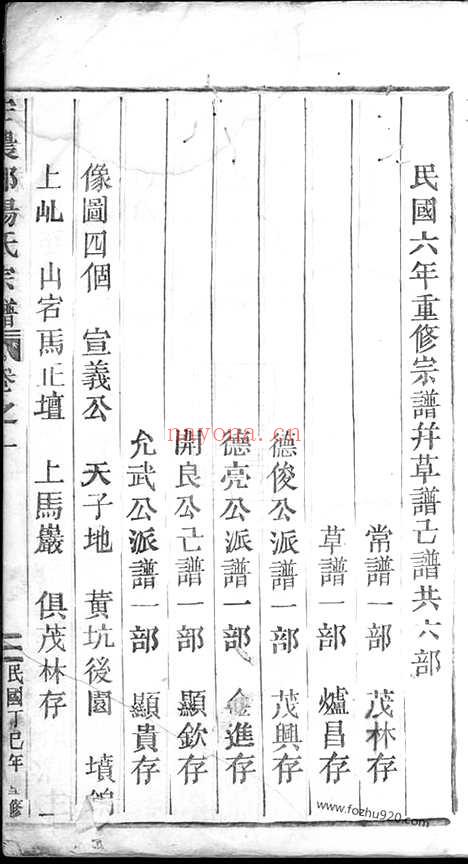 民國六年重修宗譜幷草譜㔾譜共六部
常譜一部 茂林存
草譜一部 爐昌存
德俊公派譜一部 茂興存
德亮公派譜一部 進存
開良公㔾譜一部 顯欽存
允武公派譜一部 顯貴存
像圖四個 宣義公 天子地 黃坑後園 墳
上屾 山宕馬正壇 上馬巖 俱茂林存
農郡楊氏宗譜 卷之一 二 民國丁巳年 修
nayona.cn
www.fozhu920.com